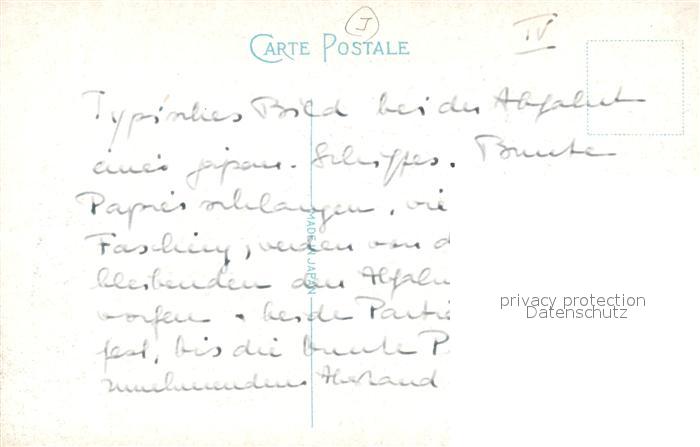 J
IV
CARTE POSTALE
Typisches Bild bei der Abfahrt
eines japan. Schiffes. Bunte
Papierschlangen, wie
Fasching, werden von d
bleibenden den Abfah
worfen & beide Partei
fest, bis die bunte P
zunehmendem Abstand
MADE IN JAPAN
privacy protection
Datenschutz